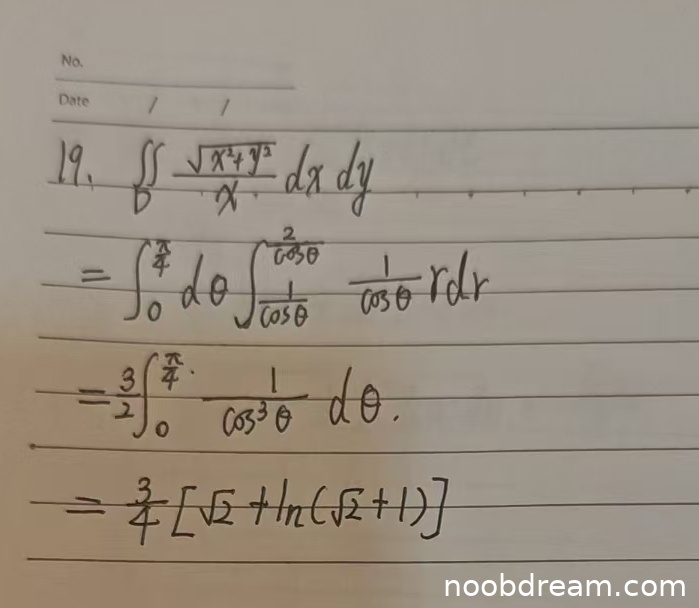 No.
Date / /
19. ∬_D √(x²+y²)/x dx dy
= ∫_0^{π/4} dθ ∫_{1/cosθ}^{2/cosθ} 1/cosθ r dr
= 3/2 ∫_0^{π/4} 1/cos³θ dθ.
= 3/4 [√2 + ln(√2+1)]
noobdream.com